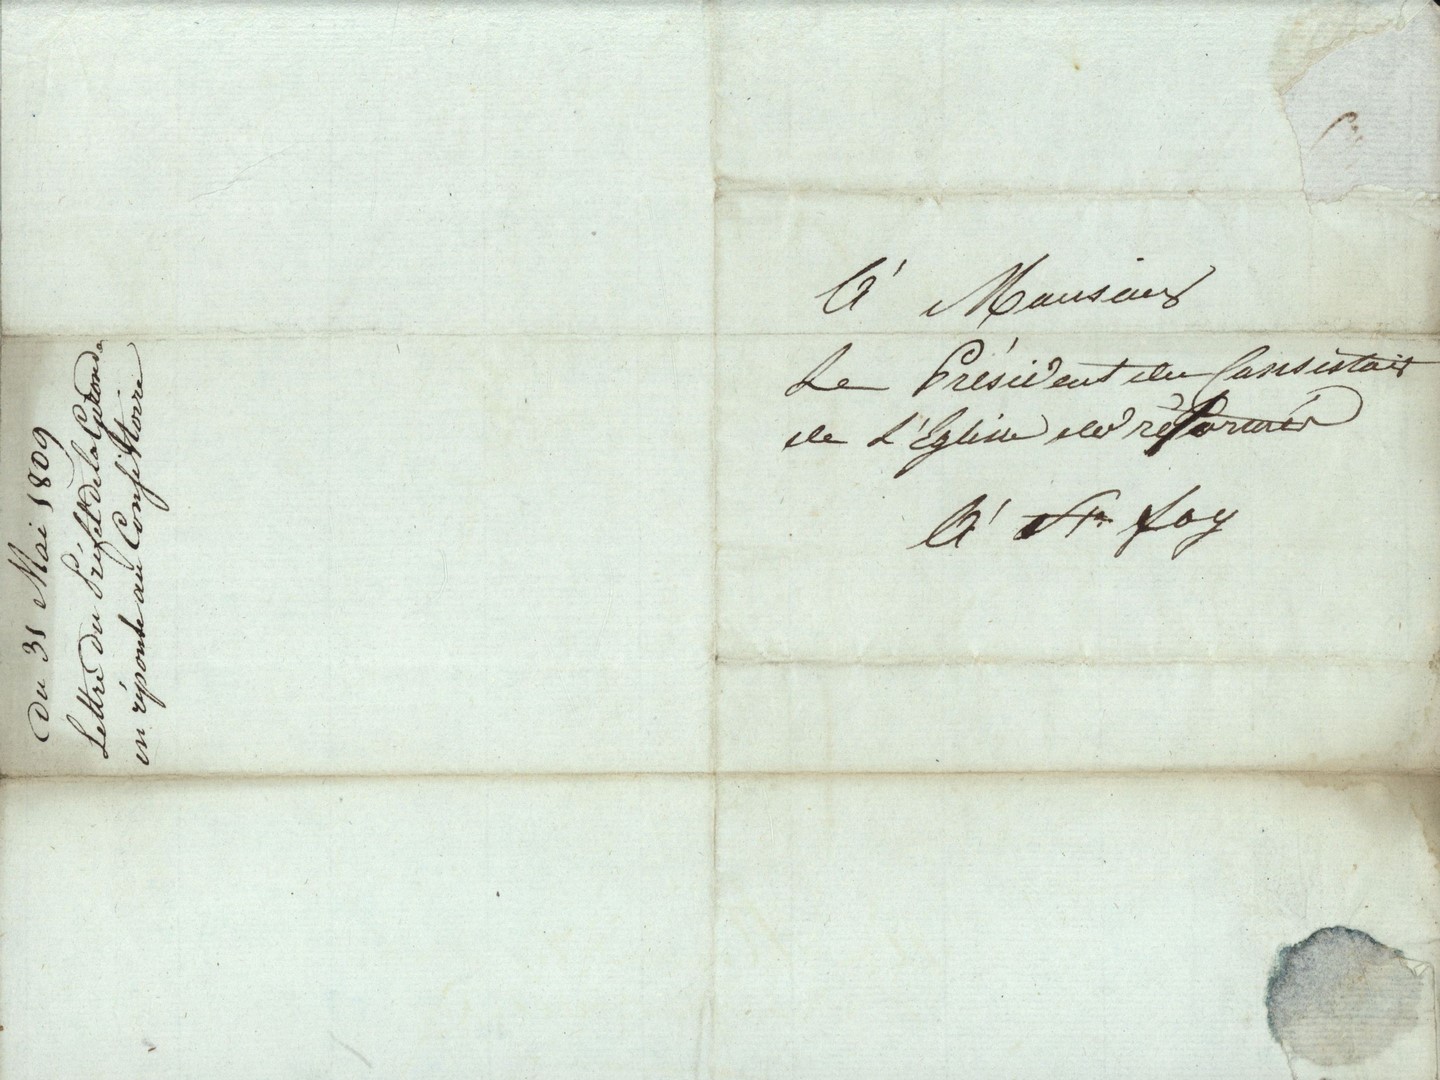 Du 31 Mai 1809
Lettre du Préfet de la Gironde
en réponse au Consistoire
A' Monsieur
Le Président du Consistoir
de l'Eglise des réformés
A' Ste foy